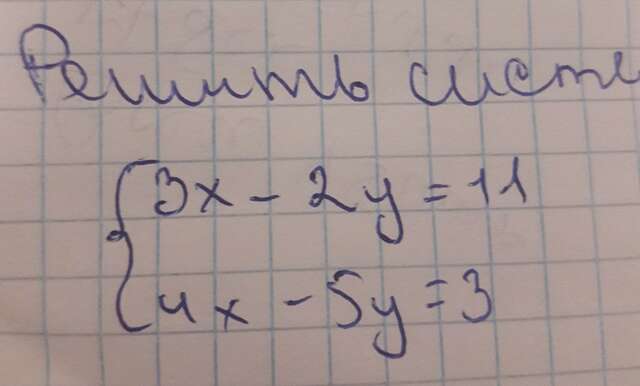 Решить систе
3x - 2y = 11
4x - 5y = 3